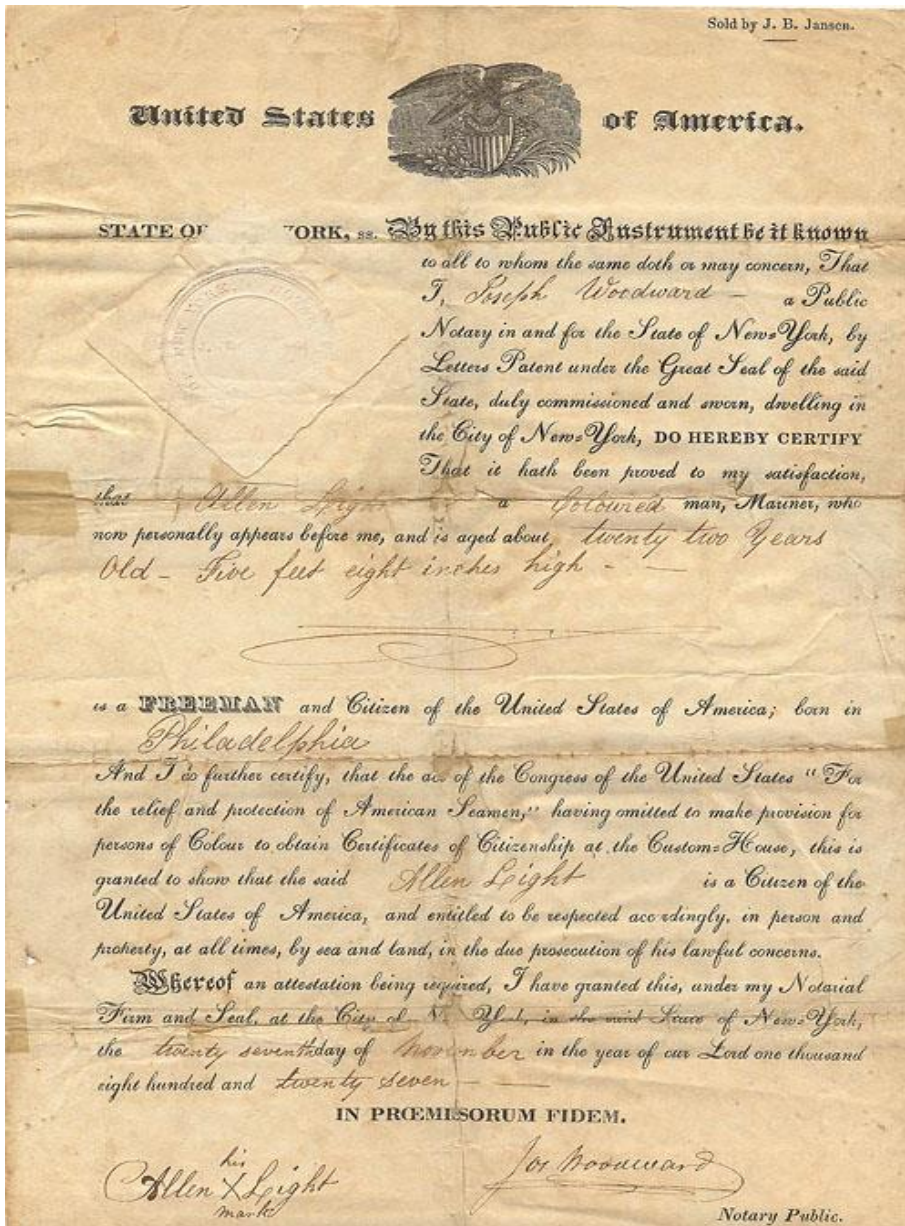 Sold by J. B. Jansen.
United States of America.
STATE OF YORK, ss. By this Public Instrument be it known
to all to whom the same doth or may concern, That
I, Joseph Woodward — a Public
Notary in and for the State of New=York, by
Letters Patent under the Great Seal of the said
State, duly commissioned and sworn, dwelling in
the City of New=York, DO HEREBY CERTIFY
That it hath been proved to my satisfaction,
that Allen Light a Coloured man, Mariner, who
now personally appears before me, and is aged about, twenty two Years
Old – Five feet eight inches high – —
is a FREEMAN and Citizen of the United States of America; born in
Philadelphia
And I do further certify, that the act of the Congress of the United States "For
the relief and protection of American Seamen," having omitted to make provision for
persons of Colour to obtain Certificates of Citizenship at the Custom=House, this is
granted to show that the said Allen Light is a Citizen of the
United States of America, and entitled to be respected accordingly, in person and
property, at all times, by sea and land, in the due prosecution of his lawful concerns.
Whereof an attestation being required, I have granted this, under my Notarial
Firm and Seal, at the City of N York, in the said State of New=York,
the twenty seventh day of November in the year of our Lord one thousand
eight hundred and twenty seven – —
IN PRŒMISORUM FIDEM.
his
Allen X Light
mark
Jos Woodward
Notary Public.